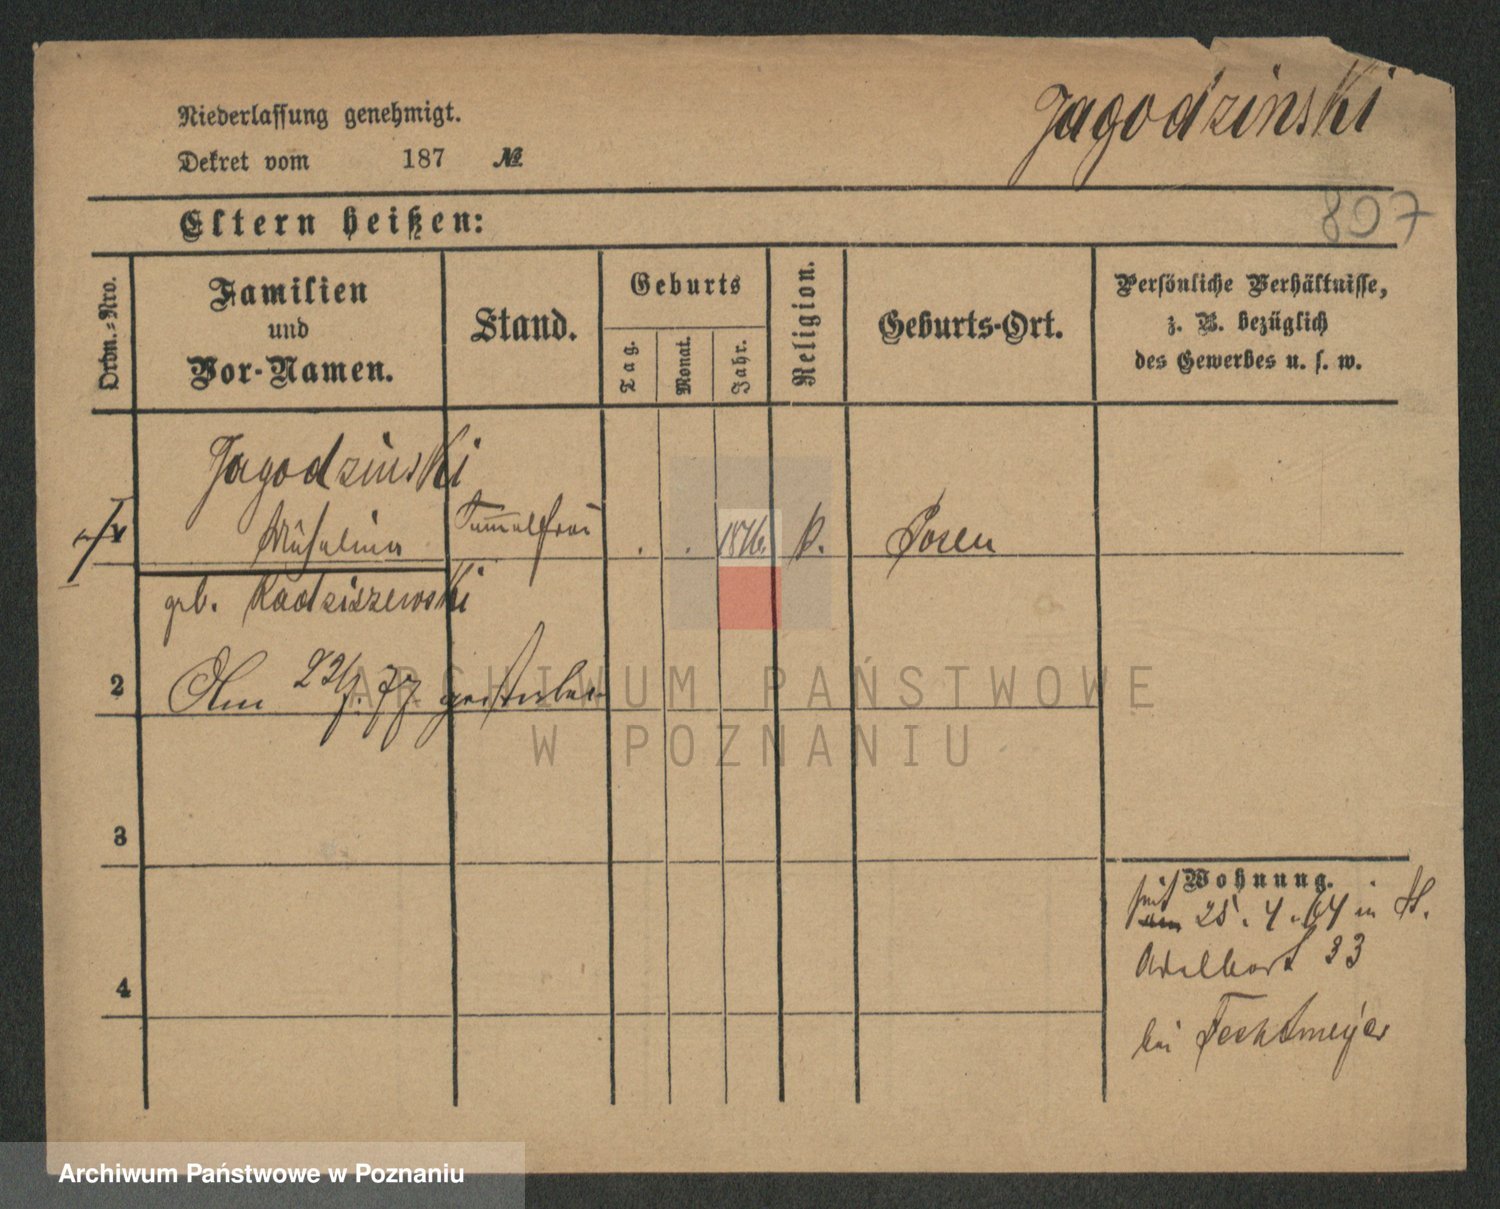 Niederlassung genehmigt.
Jagodzinski
Dekret vom 187 №
897
Eltern heißen:
Ordn.-Nro.
Familien
und
Vor-Namen.
Stand.
Geburts
Tag.
Monat.
Jahr.
Religion.
Geburts-Ort.
Persönliche Verhältnisse,
z. B. bezüglich
des Gewerbes u. s. w.
Jagodzinski
k. Posen
geb. Radziszewski
2 Am 22/7. 77. gestorben
ARCHIWUM PAŃSTWOWE
W POZNANIU
3
Wohnung.
seit 25. 4. 64 in St.
Adelbert 33
4
bei Fechtmeyer
Archiwum Państwowe w Poznaniu